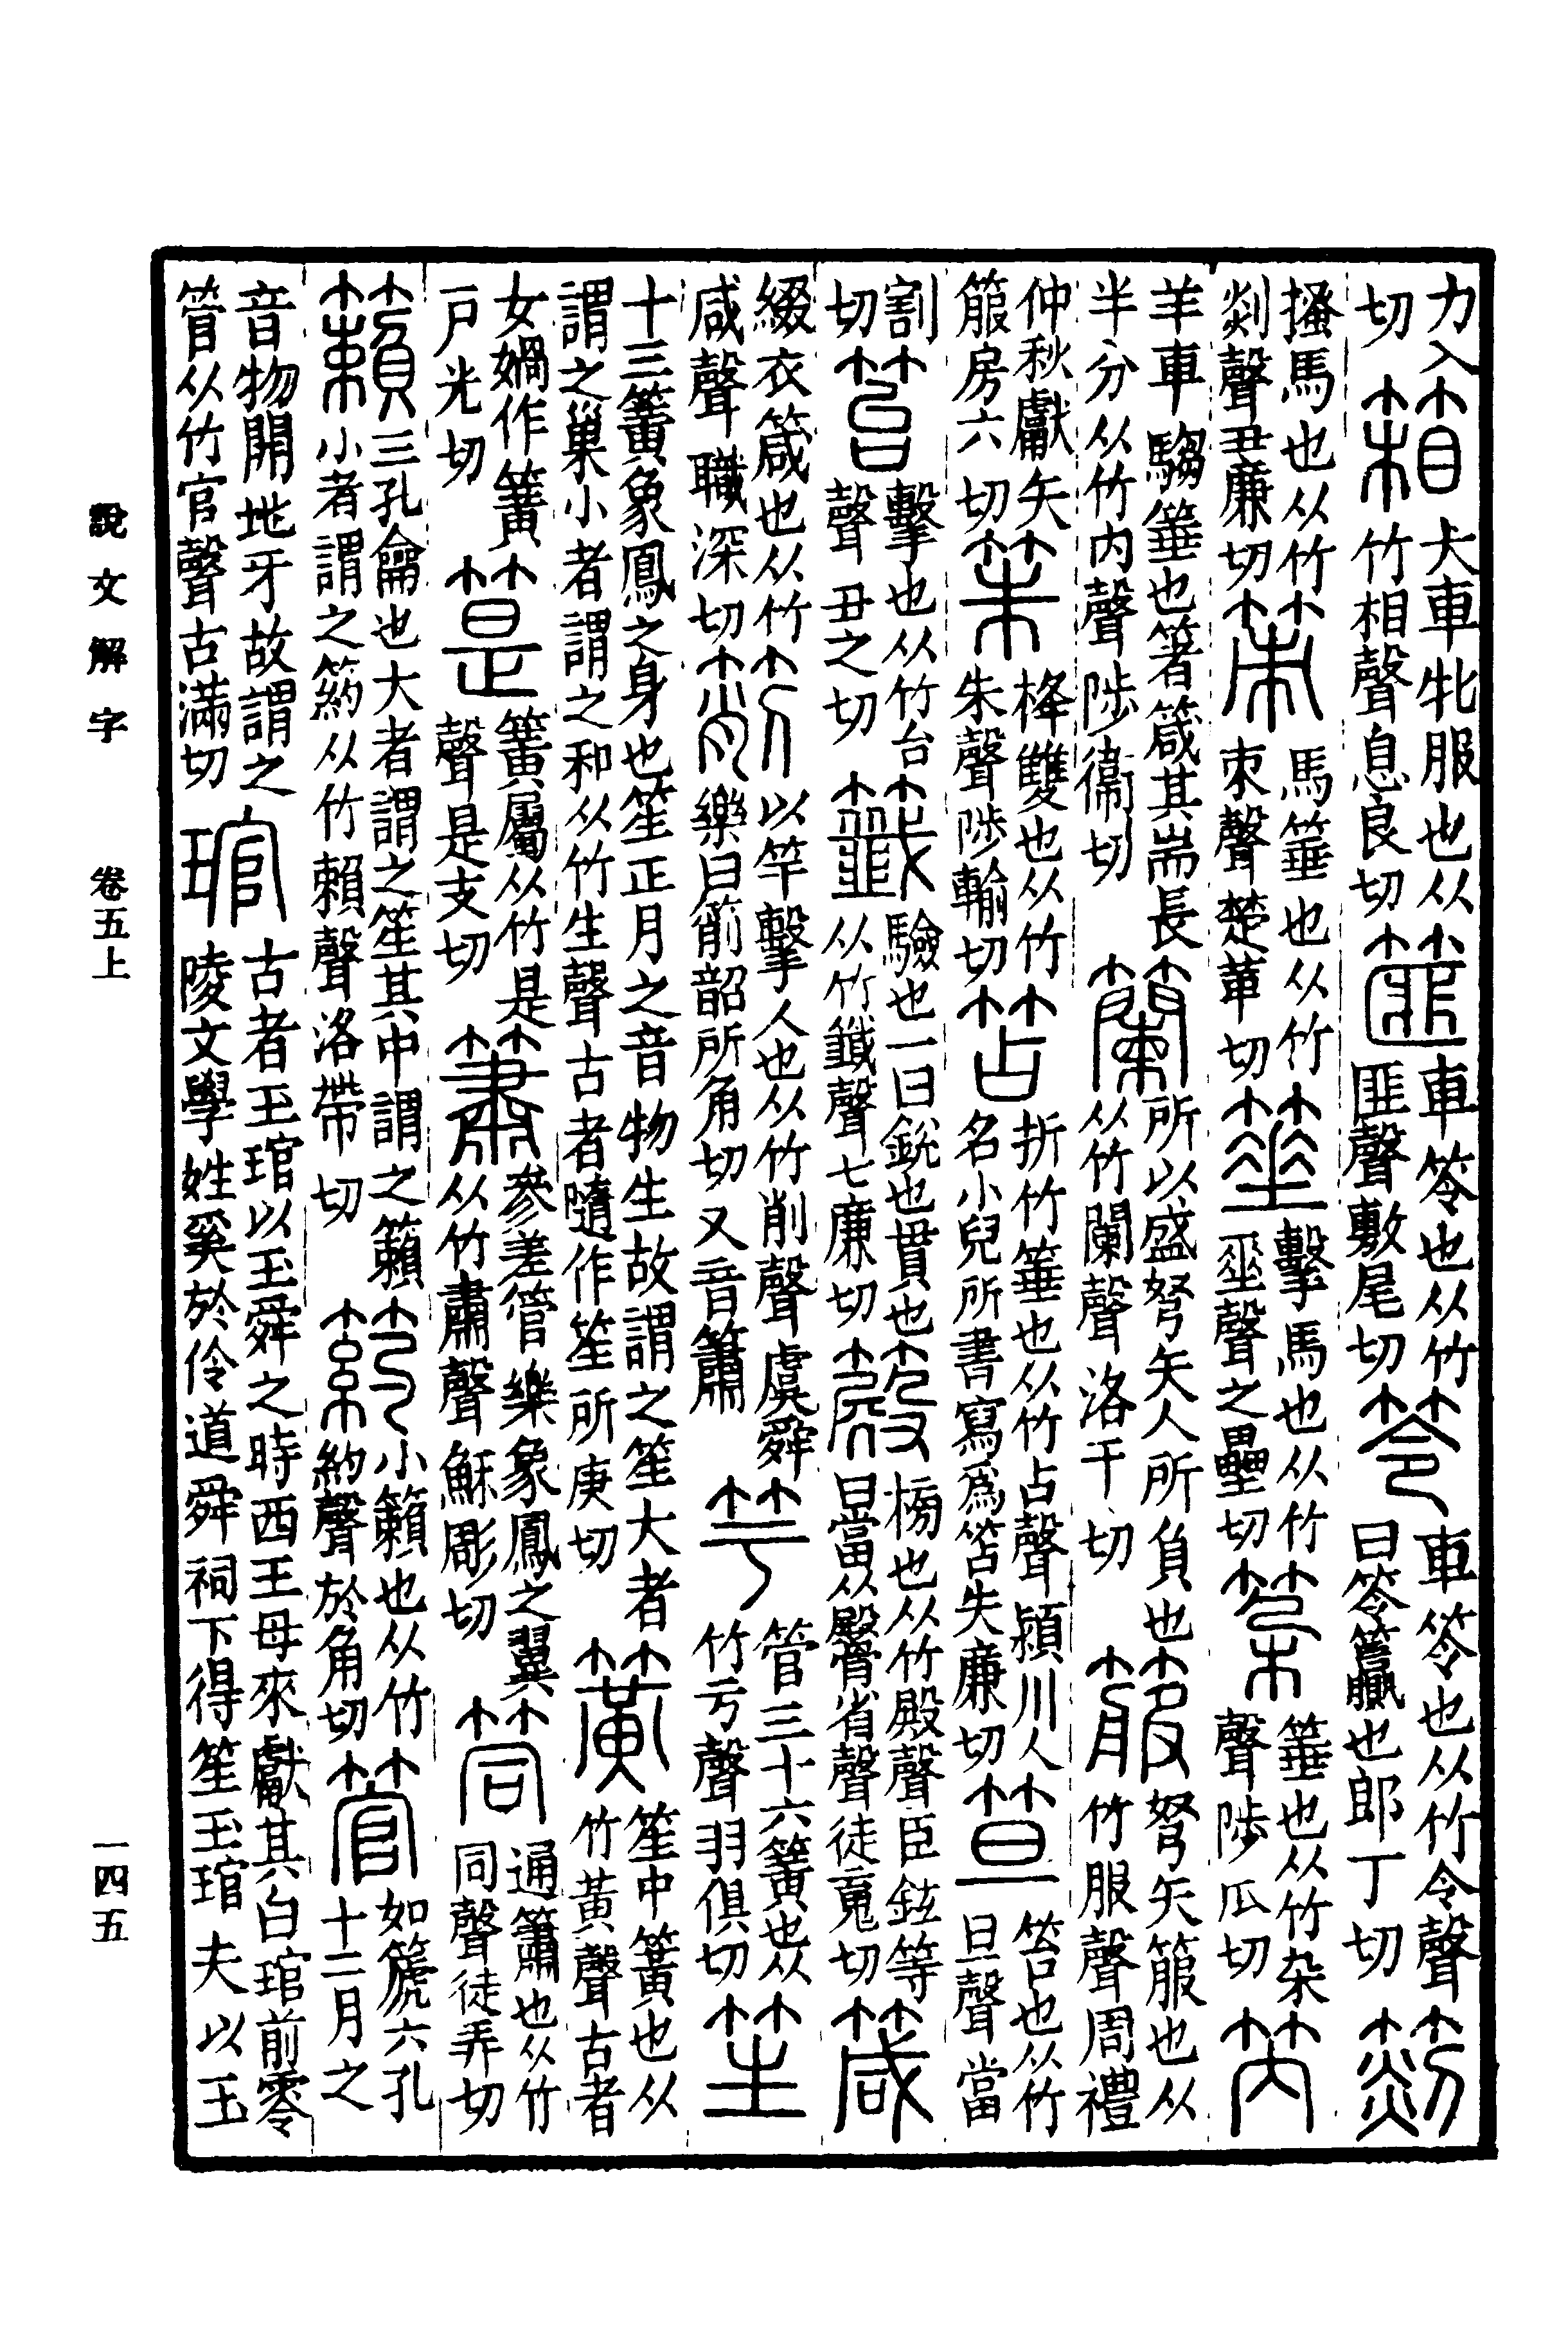 力入切 箱 大車牝服也从竹相聲息良切 篚 車笭也从竹匪聲敷尾切 笭 車笭也从竹令聲曰笭籯也郎丁切 䈀
搔馬也从竹剡聲丑廉切 策 馬箠也从竹朿聲楚革切 箠 擊馬也从竹𠂹聲之壘切 𥬲 箠也从竹朵聲陟瓜切 笍
羊車騶箠也箸箴其耑長半分从竹內聲陟衞切 籣 所以盛弩矢人所負也从竹闌聲洛干切 箙 弩矢箙也从竹服聲周禮
仲秋獻矢箙房六切 䇬 栙雙也从竹朱聲陟輸切 笘 折竹箠也从竹占聲潁川人名小兒所書寫爲笘失廉切 笪 笞也从竹旦聲當
割切 笞 擊也从竹台聲丑之切 籤 驗也一曰銳也貫也从竹韱聲七廉切 𥳪 榜也从竹殿聲臣鉉等曰當从臋省聲徒䰟切 箴
綴衣箴也从竹咸聲職深切 箾 以竿擊人也从竹削聲虞舜樂曰箾韶所角切又音簫 竽 管三十六簧也从竹亏聲羽俱切 笙
十三簧象鳳之身也笙正月之音物生故謂之笙大者謂之巢小者謂之和从竹生聲古者隨作笙所庚切 簧 笙中簧也从竹黃聲古者
女媧作簧戶光切 𥮖 簧屬从竹是聲是支切 簫 參差管樂象鳳之翼从竹肅聲穌彫切 筒 通簫也从竹同聲徒弄切
籟 三孔龠也大者謂之笙其中謂之籟小者謂之箹从竹賴聲洛帶切 箹 小籟也从竹約聲於角切 管 如篪六孔十二月之
音物開地牙故謂之管从竹官聲古滿切 琯 古者玉琯以玉舜之時西王母來獻其白琯前零陵文學姓奚於伶道舜祠下得笙玉琯夫以玉
說文解字 卷五上 一四五